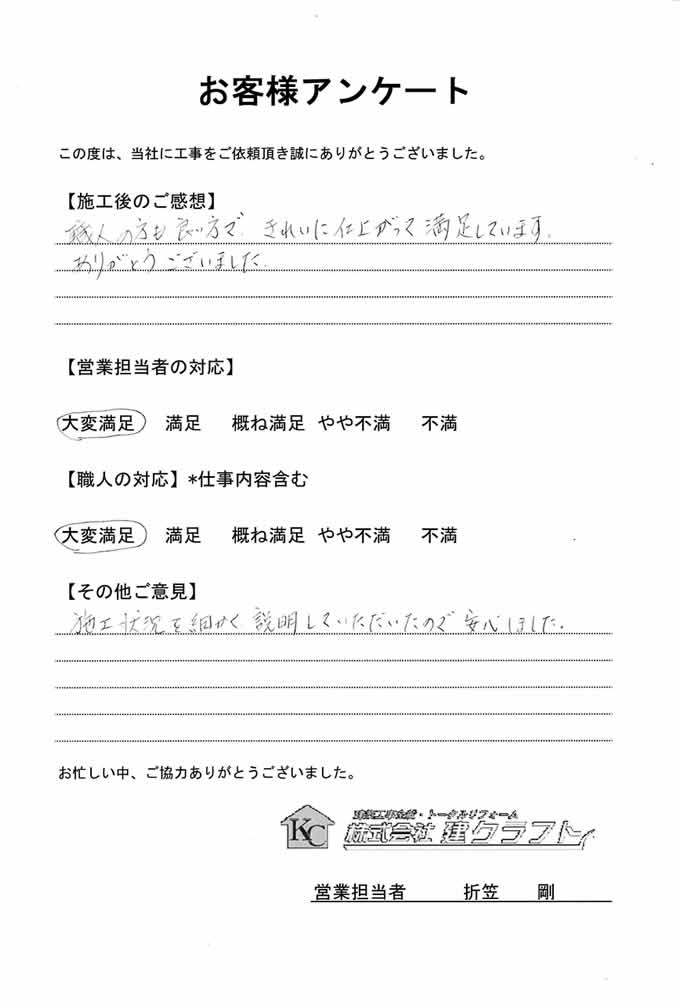 お客様アンケート
この度は、当社に工事をご依頼頂き誠にありがとうございました。
【施工後のご感想】
職人の方も良い方で、きれいに仕上がって満足しています。
ありがとうございました。
【営業担当者の対応】
大変満足 満足 概ね満足 やや不満 不満
【職人の対応】*仕事内容含む
大変満足 満足 概ね満足 やや不満 不満
【その他ご意見】
施工状況を細かく説明していただいたので安心しました。
お忙しい中、ご協力ありがとうございました。
KC
建築工事全般・トータルリフォーム
株式会社 建クラフト
営業担当者 折笠 剛